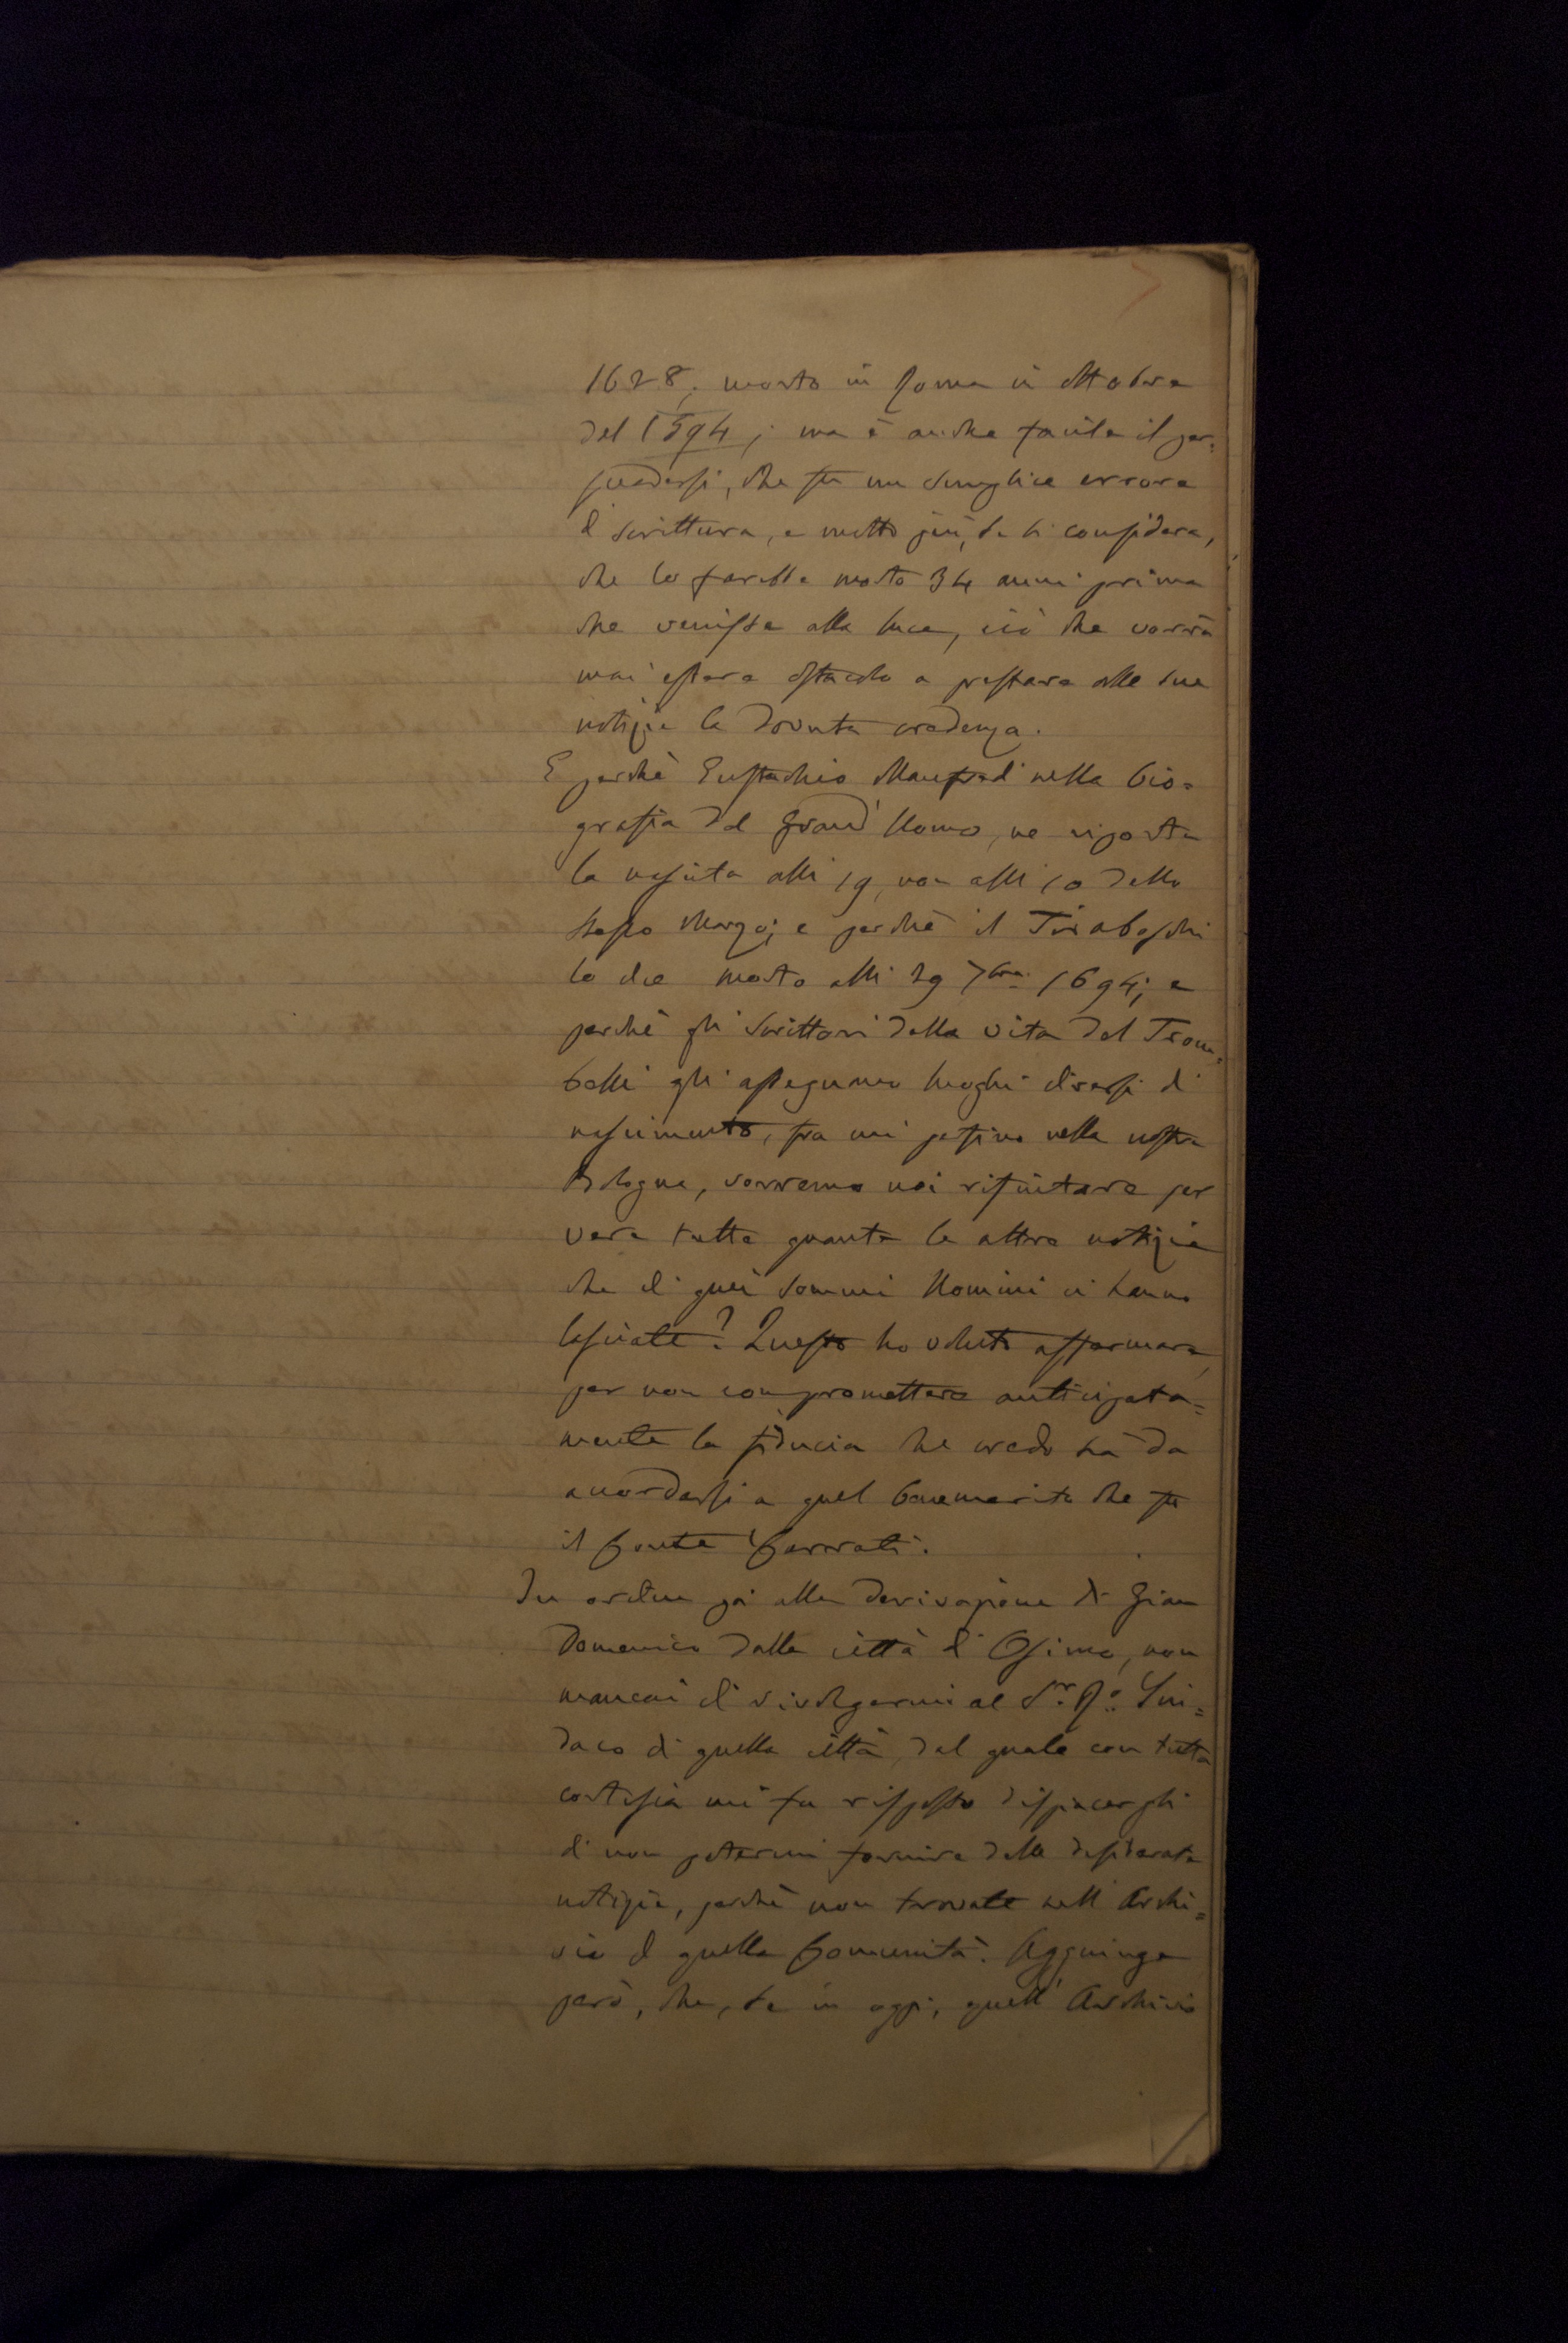 1628; morto in Roma in Ottobre
del 1594; ma è anche facile il per=
suadersi, che fu un semplice errore
di scrittura, e molto più, se si considera,
che lo farebbe morto 34 anni prima
che venisse alla luce, ciò che vorrà
mai essere ostacolo a prestare alle sue
notizie la dovuta credenza.
E perchè Eustachio Manfredi nella bio=
grafia del Grand'Uomo, ne riporta
la nascita alli 19, non alli 10 dello
stesso Marzo; e perchè il Tiraboschi
lo dice morto alli 29 7bre 1694; e
perchè gli scrittori della vita del Trom=
belli gli assegnano luoghi diversi di
nascimento, fra cui persino nella nostra
Bologna, vorremo noi rifiutare per
vere tutte quante le altre notizie
che di quei sommi Uomini ci hanno
lasciate? Questo ho voluto affermare,
per non compromettere anticipata=
mente la fiducia che credo ha da
accordarsi a quel benemerito che fu
il Conte Carrati.
In ordine poi alla derivazione di Gian
Domenico dalla città di Osimo, non
mancai di rivolgermi al Sr. Rº. Sin=
daco di quella città, dal quale con tutta
cortesia mi fu risposto dispiacergli
di non potermi fornire delle desiderate
notizie, perchè non trovate nell'Archi=
vio di quella Comunità. Aggiunge
però, che, se in oggi, quell'Archivio